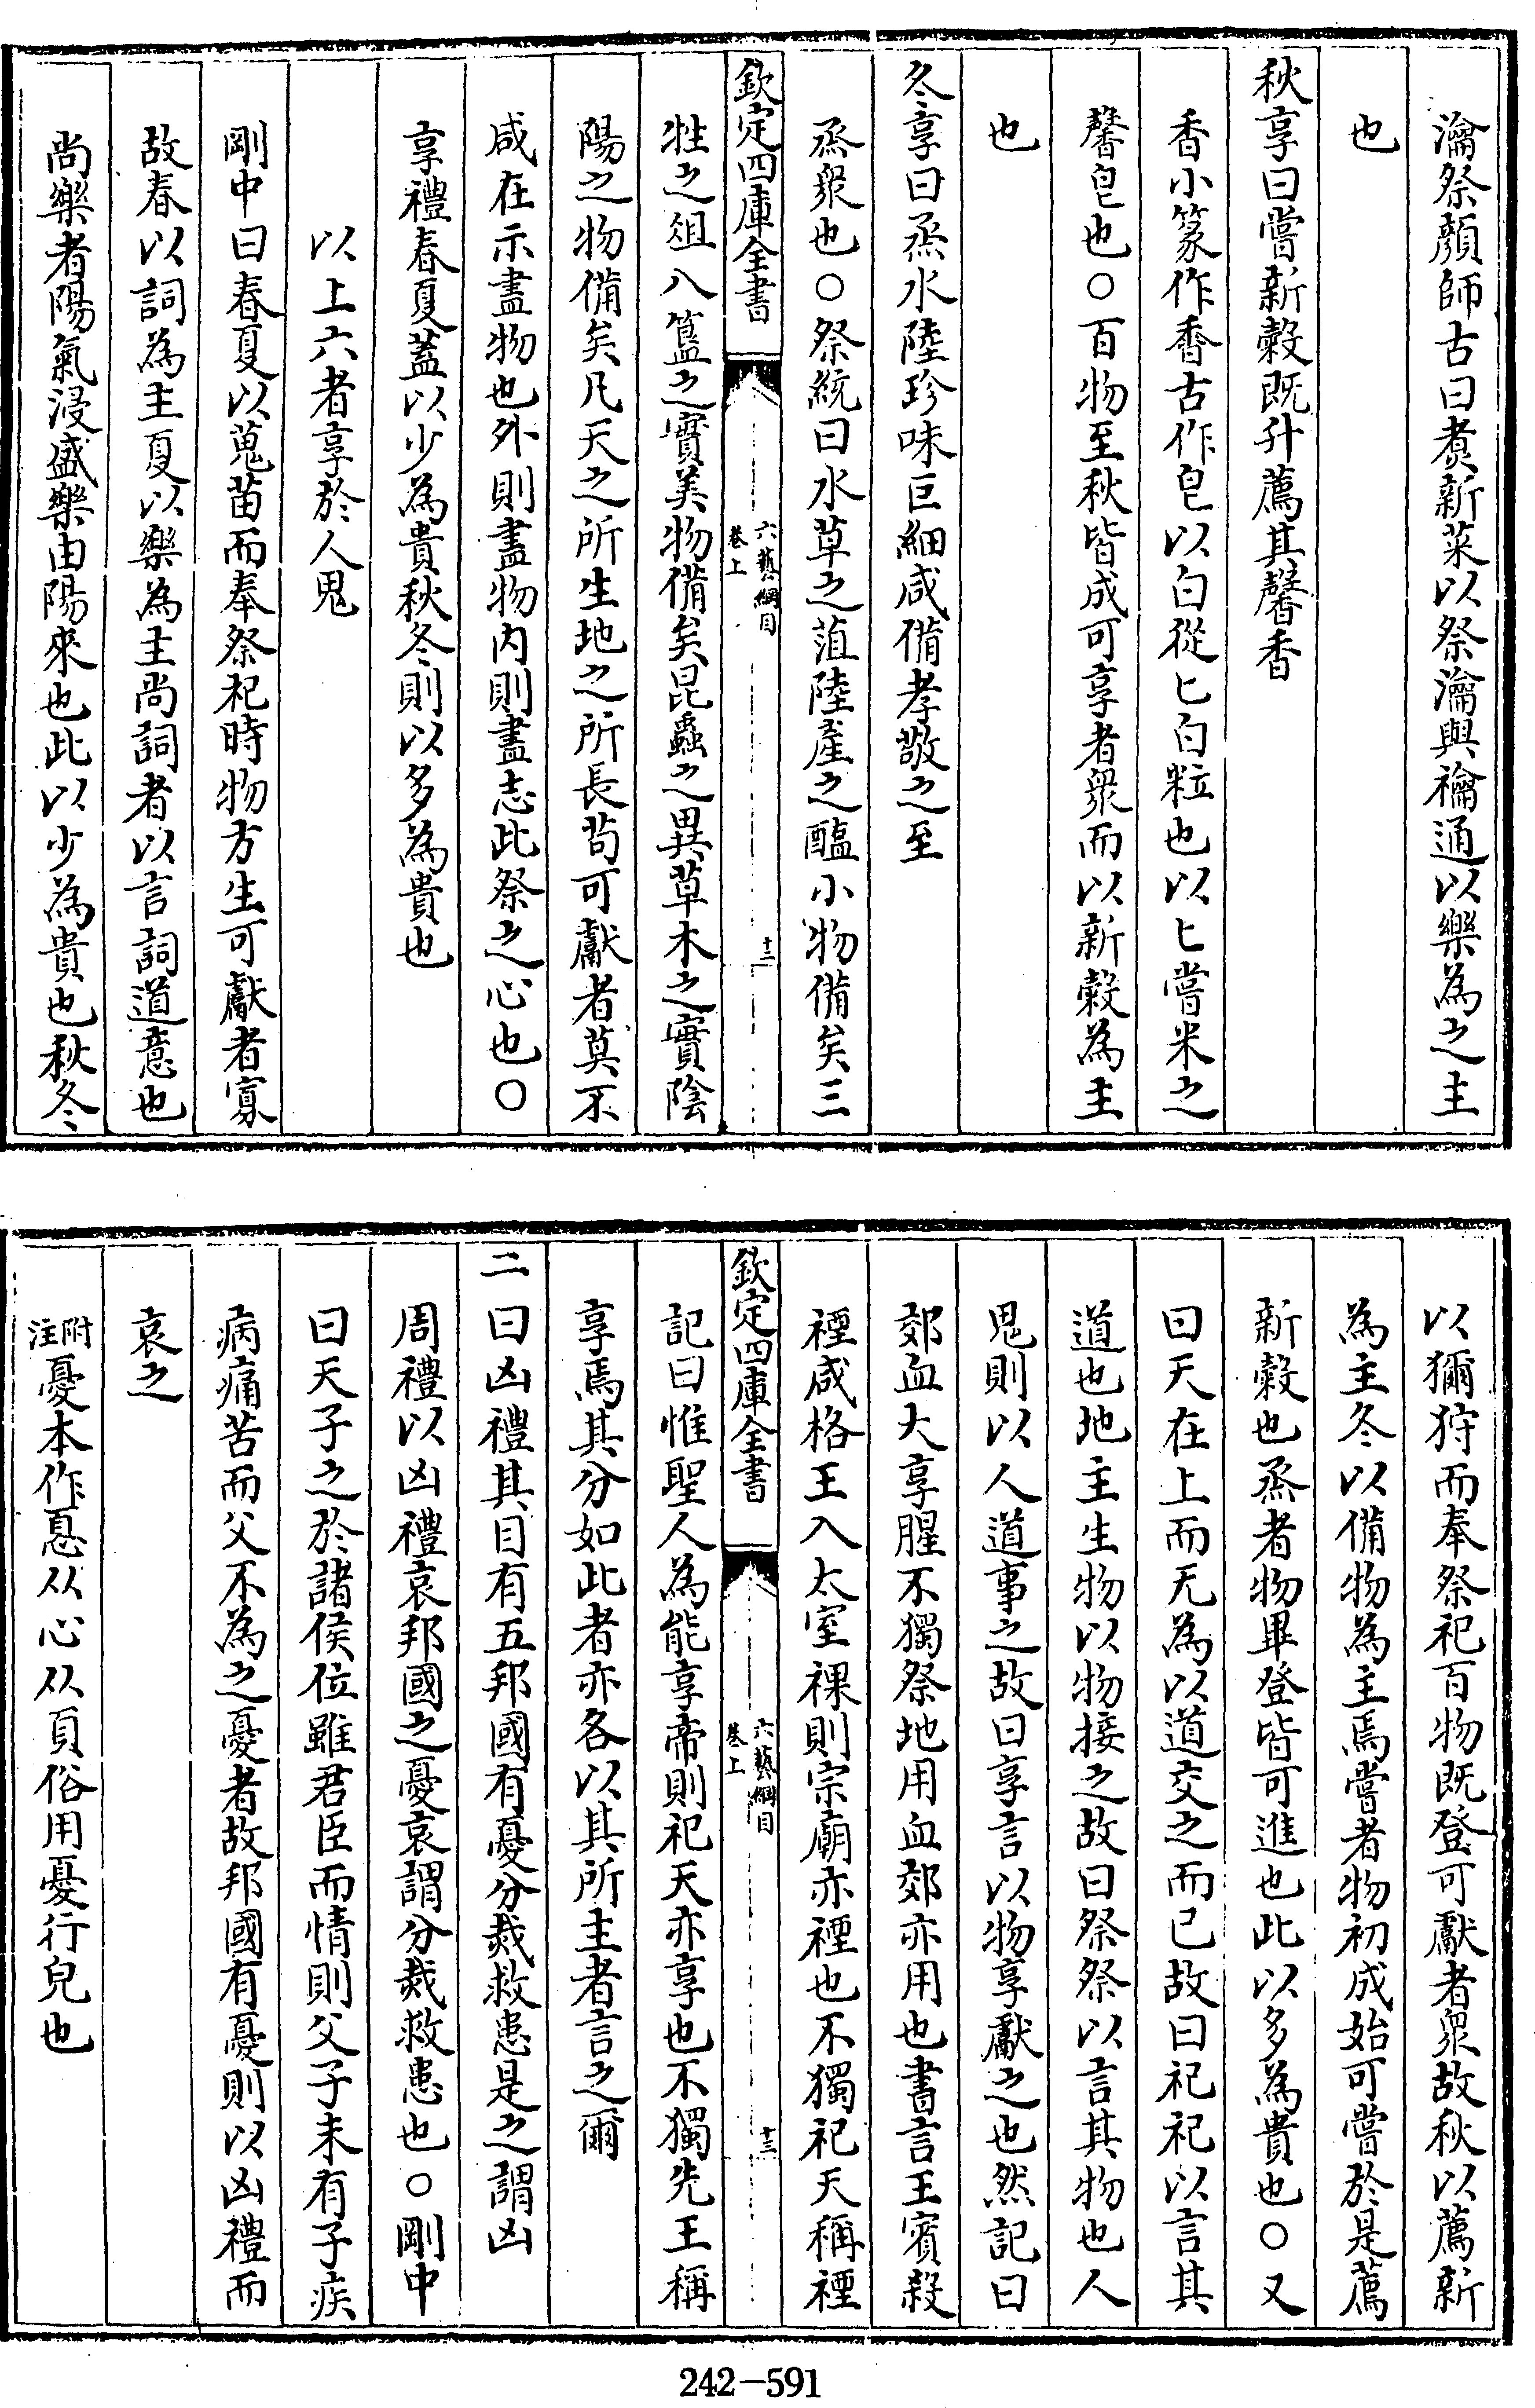 瀹祭顔師古曰煑新菜以祭瀹與禴通以樂為之主
也
秋享曰嘗新穀既升薦其馨香
香小篆作香古作皀以白從匕白粒也以匕嘗米之
馨皀也○百物至秋皆成可享者衆而以新穀為主
也
冬享曰烝水陸珍味巨細咸備孝敬之至
烝衆也○祭統曰水草之菹陸產之醢小物備矣三
欽定四庫全書
六藝綱目
卷上
十二
牲之俎八簋之實美物備矣昆蟲之異草木之實陰
陽之物備矣凡天之所生地之所長苟可獻者莫不
咸在示盡物也外則盡物内則盡志此祭之心也○
享禮春夏蓋以少為貴秋冬則以多為貴也
以上六者享於人鬼
剛中曰春夏以蒐苗而奉祭祀時物方生可獻者寡
故春以詞為主夏以樂為主尚詞者以言詞道意也
尚樂者陽氣浸盛樂由陽來也此以少為貴也秋冬
以獮狩而奉祭祀百物既登可獻者衆故秋以薦新
為主冬以備物為主焉嘗者物初成始可嘗於是薦
新穀也烝者物畢登皆可進也此以多為貴也○又
曰天在上而无為以道交之而已故曰祀祀以言其
道也地主生物以物接之故曰祭祭以言其物也人
鬼則以人道事之故曰享言以物享獻之也然記曰
郊血大享腥不獨祭地用血郊亦用也書言王賓殺
禋咸格王入太室祼則宗廟亦禋也不獨祀天稱禋
欽定四庫全書
六藝綱目
卷上
十三
記曰惟聖人為能享帝則祀天亦享也不獨先王稱
享焉其分如此者亦各以其所主者言之爾
二曰凶禮其目有五邦國有憂分烖救患是之謂凶
周禮以凶禮哀邦國之憂哀謂分烖救患也○剛中
曰天子之於諸侯位雖君臣而情則父子未有子疾
病痛苦而父不為之憂者故邦國有憂則以凶禮而
哀之
附注憂本作惪从心从頁俗用憂行皃也
242-591